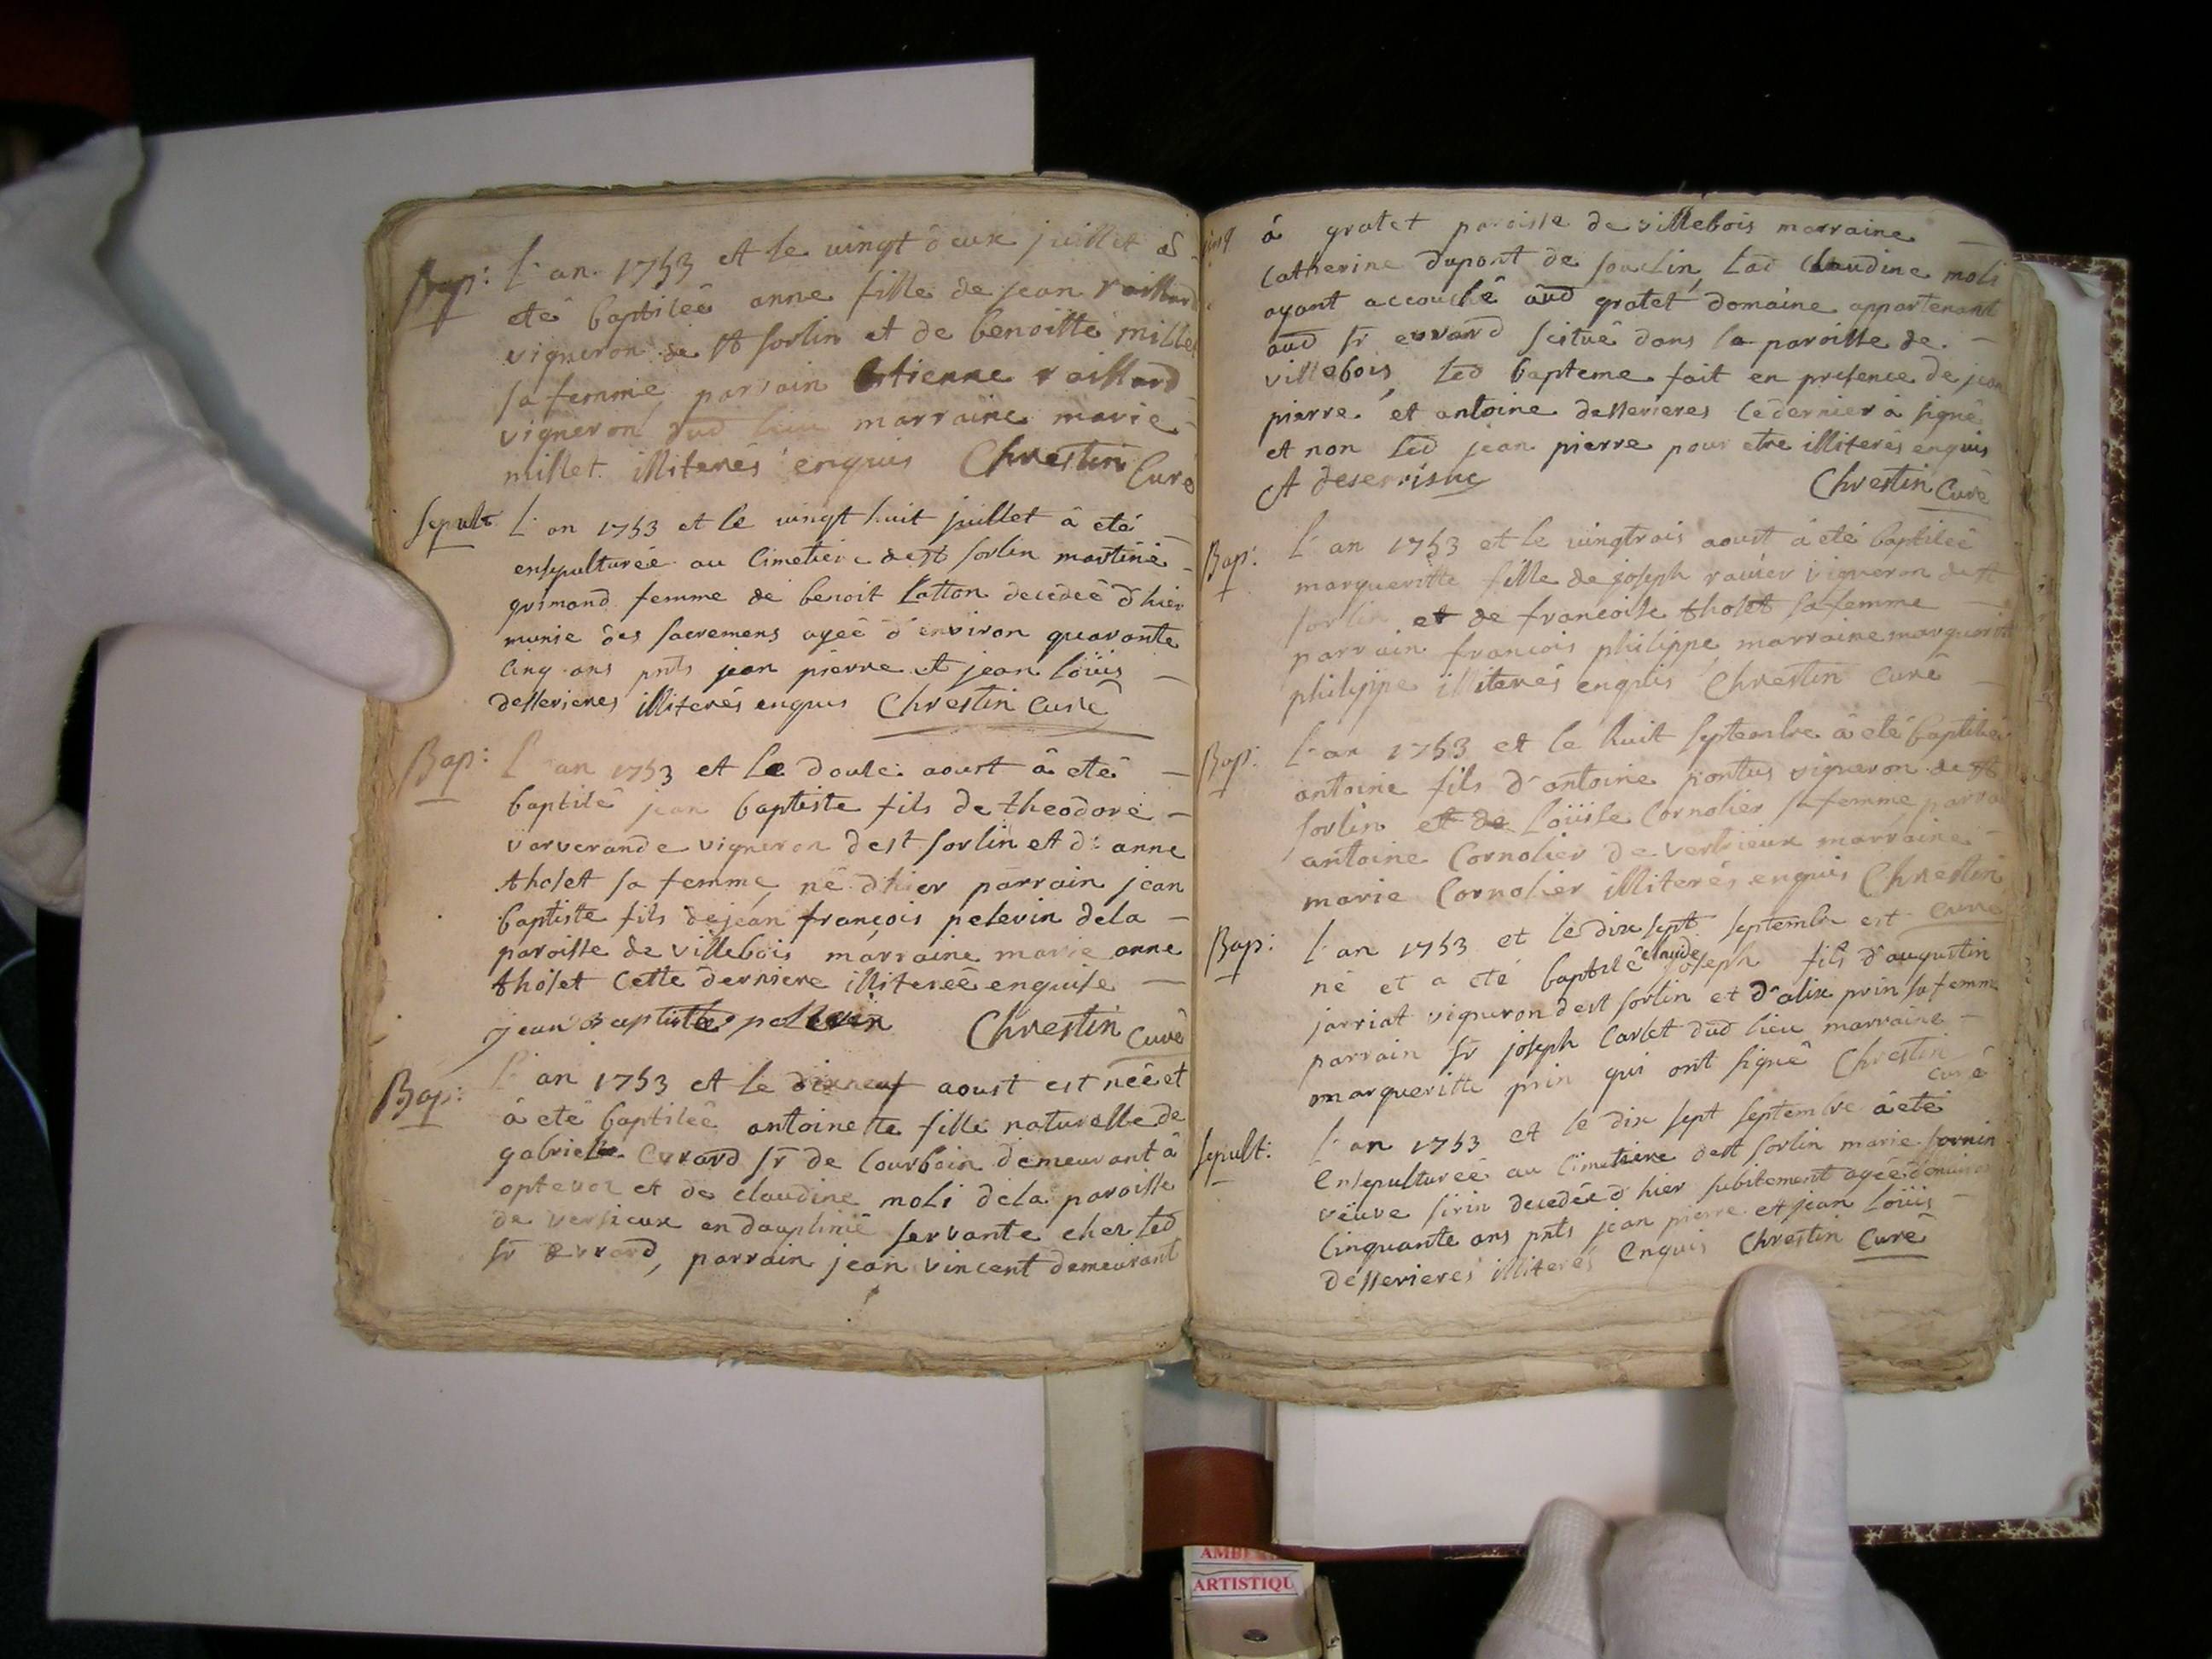 Bap: L'an 1753 et le vingt deux juillet a
eté baptiseê anne fille de jean raillard
vigneron de st sorlin et de benoitte millet
sa femme parrain Etienne raillard
vigneron dud lieu marraine marie
millet illiterés enquis Chrestin Curé
Sepult: L'an 1753 et le vingt huit juillet â eté
ensepulturée au Cimetiere de st sorlin martine
grimand femme de benoit Latton decedeê d'hier
munie des sacremens ageê d'environ quarante
Cinq ans pnts jean pierre et jean loüis
desserieres illiterés enquis Chrestin Curé
Bap: L'an 1753 et le douse aoust â eté
baptisê jean baptiste fils de theodore
varverande vigneron de st sorlin et d'anne
tholet sa femme nê d'hier parrain jean
baptiste fils de jean françois pelevin de la
paroisse de villebois marraine marie anne
tholet Cette derniere illitereê enquise
jean Baptiste pellevin Chrestin Curê
Bap: L'an 1753 et le dixneuf aoust est neê et
â eté baptiseê antoinette fille naturelle de
gabriel evrard sr de Courboin demeurant â
optevoz et de claudine moli de la paroisse
de versieux en dauphinê servante chez led
sr Evrard, parrain jean vincent demeurant
â gratet paroisse de villebois marraine
Catherine dupont de souclin, Lad Claudine moli
ayant accouchê aud gratet domaine appartenant
aud sr evrard scituê dans la paroisse de
villebois, Led bapteme fait en presence de jean
pierre et antoine desserieres Ce dernier â signê
et non led jean pierre pour etre illiterés enquis
A deserrisuc Chrestin Curé
Bap: L'an 1753 et le vingtrois aoust â eté baptiseê
margueritte fille de joseph ravier vigneron de st
sorlin et de francoise tholet sa femme
parrain francois philippe marraine margueritte
philippe illiterés enquis Chrestin Curê
Bap: L'an 1753 et le huit septembre â eté baptisê
antoine fils d'antoine pontus vigneron de st
sorlin et de Loüise Cornolier sa femme parrain
antoine Cornolier de vertrieux marraine
marie Cornolier illiterés enquis Chrestin
Curé
Bap: L'an 1753 et le dix sept septembre est
né et a eté baptisê claude joseph fils d'augustin
jarriat vigneron de st sorlin et d'alix prin sa femme
parrain sr joseph Carlet dud lieu marraine
margueritte prin qui ont signê Chrestin
Curé
Sepult: L'an 1753 et le dix sept septembre â eté
Ensepultureê au Cimetiere de st sorlin marie fornin
veuve sirin decedée d'hier subitement ageê d'environ
Cinquante ans pnts jean pierre et jean loüis
desserieres illiterés Enquis Chrestin Curé
ARTISTIQU